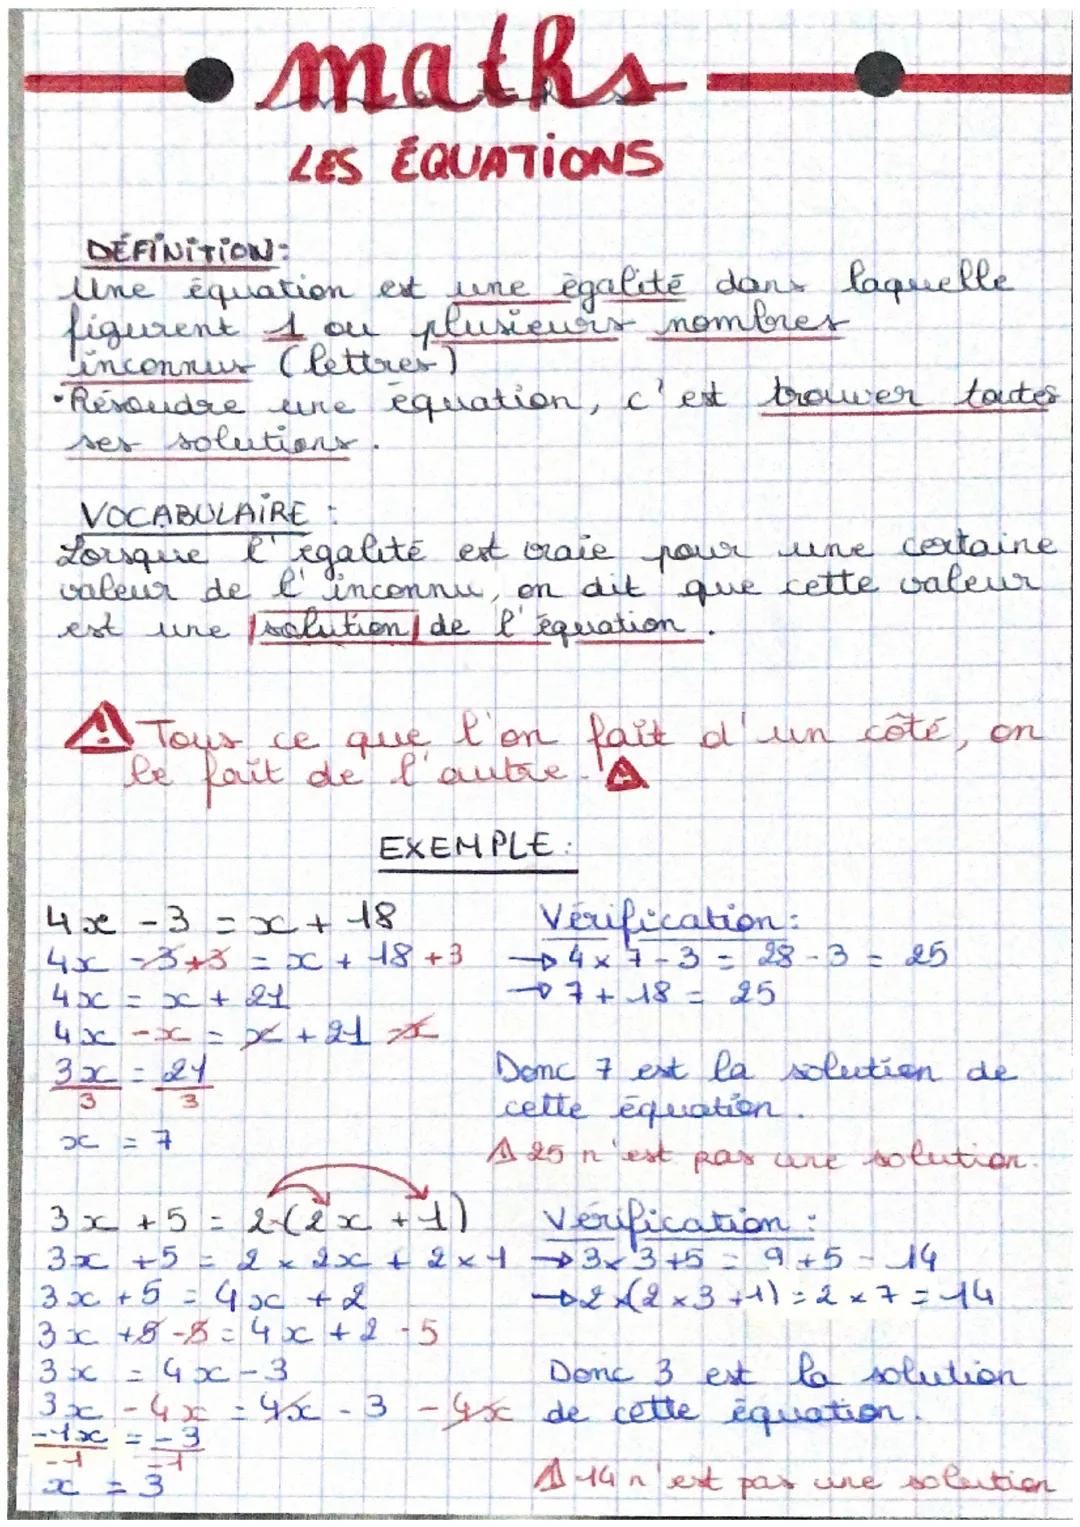 maths
LES ÉQUATIONS
DÉFINITION:
Une équation est une égalité dans laquelle
figurent 1 ou plusieurs nombres
inconnus (lettres)
•Résoudre une équation, c'est trouver toutes
ses solutions.
VOCABULAIRE:
Lorsque l'égalité est vraie pour une certaine
valeur de l'inconnu, on dit que cette valeur
est une |solution| de l'équation.
⚠ Tous ce que l'on fait d'un côté, on
le fait de l'autre. ⚠
EXEMPLE:
4x - 3 = x + 18
4x - 3 + 3 = x + 18 + 3
4x = x + 21
4x - x = x + 21 - x
3x = 21
3 3
x = 7
Vérification:
→ 4 x 7 - 3 = 28 - 3 = 25
→ 7 + 18 = 25
Donc 7 est la solution de
cette équation.
⚠ 25 n'est pas une solution.
3x + 5 = 2 (2x + 1)
3x + 5 = 2 x 2x + 2 x 1
3x + 5 = 4x + 2
3x + 5 - 5 = 4x + 2 - 5
3x = 4x - 3
3x - 4x = 4x - 3 - 4x
-1x = -3
-1 -1
x = 3
Vérification:
→ 3 x 3 + 5 = 9 + 5 = 14
→ 2 x (2 x 3 + 1) = 2 x 7 = 14
Donc 3 est la solution
de cette équation.
⚠ 14 n'est pas une solution